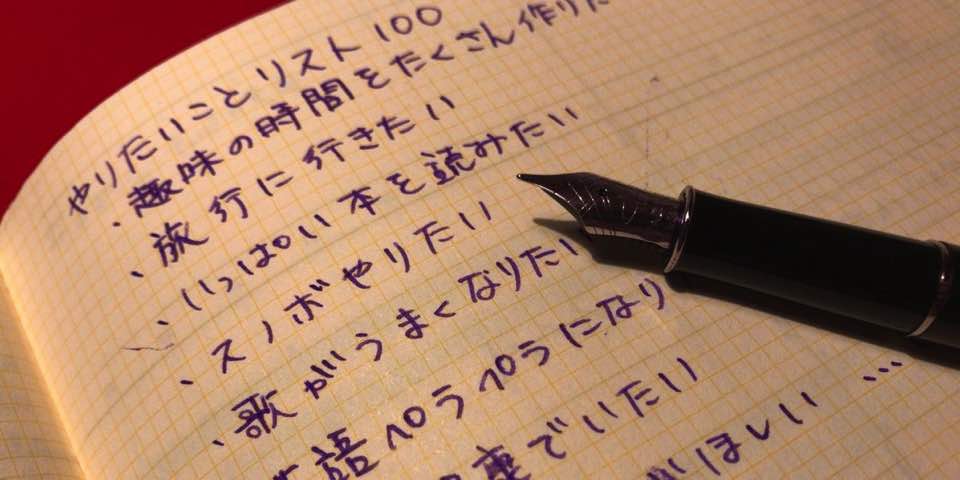 やりたいことリスト100
・趣味の時間をたくさん作りた
・旅行に行きたい
・いっぱい本を読みたい
・スノボやりたい
・歌がうまくなりたい
語ペラペラになり
座でいたい
がほしい…